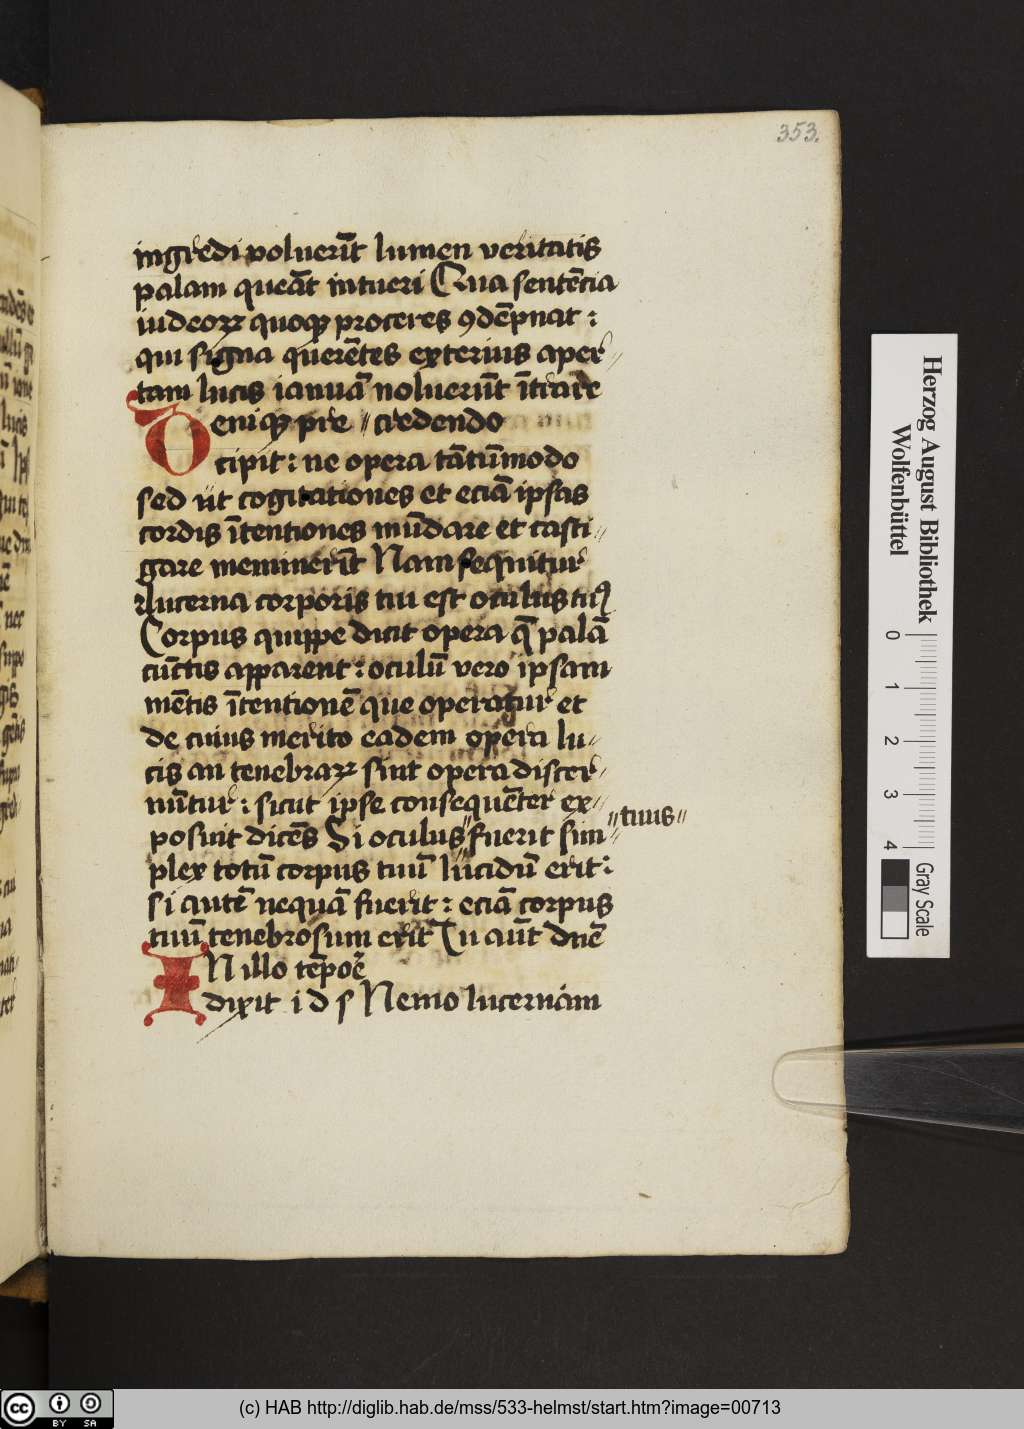 353.
ingredi voluerīt lumen veritatis
palam queāt intueri Qua sentēcia
iudeoꝝ quoqꝫ proceres ꝯdēpnat :
qui signa querētes exterius aper〃
tam lucis ianuā noluerūt ītrare
Deniqꝫ pre〃credendo
cipit : ne opera tātūmodo
sed ut cogitationes et eciā ipsas
cordis ītentiones mūdare et casti〃
gare meminerīt Nam sequitur
Lucerna corporis tui est oculus tuꝰ
Corpus quippe dicit opera q̄ palā
cūctis apparent : oculū vero ipsam
mētis ītentionē que operatur et
de cuius merito eadem opera lu〃
cis an tenebraꝝ sint opera discer〃
nūtur : sicut ipse consequēter ex〃
posuit dicēs Si oculus〃fuerit sim〃 〃tuus〃
plex totū corpus tuū lucidū erit :
si autē nequā fuerit : eciā corpus
tuū tenebrosum erit Tu aūt dn̄e
IN illo tēpoē
dixit i d s Nemo lucernam
Herzog August Bibliothek
Wolfenbüttel
0 1 2 3 4
Gray Scale
cc BY SA
(c) HAB http://diglib.hab.de/mss/533-helmst/start.htm?image=00713